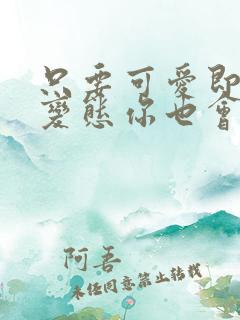 只要可愛即
變態你也會
阿吾
未经同意禁止转载